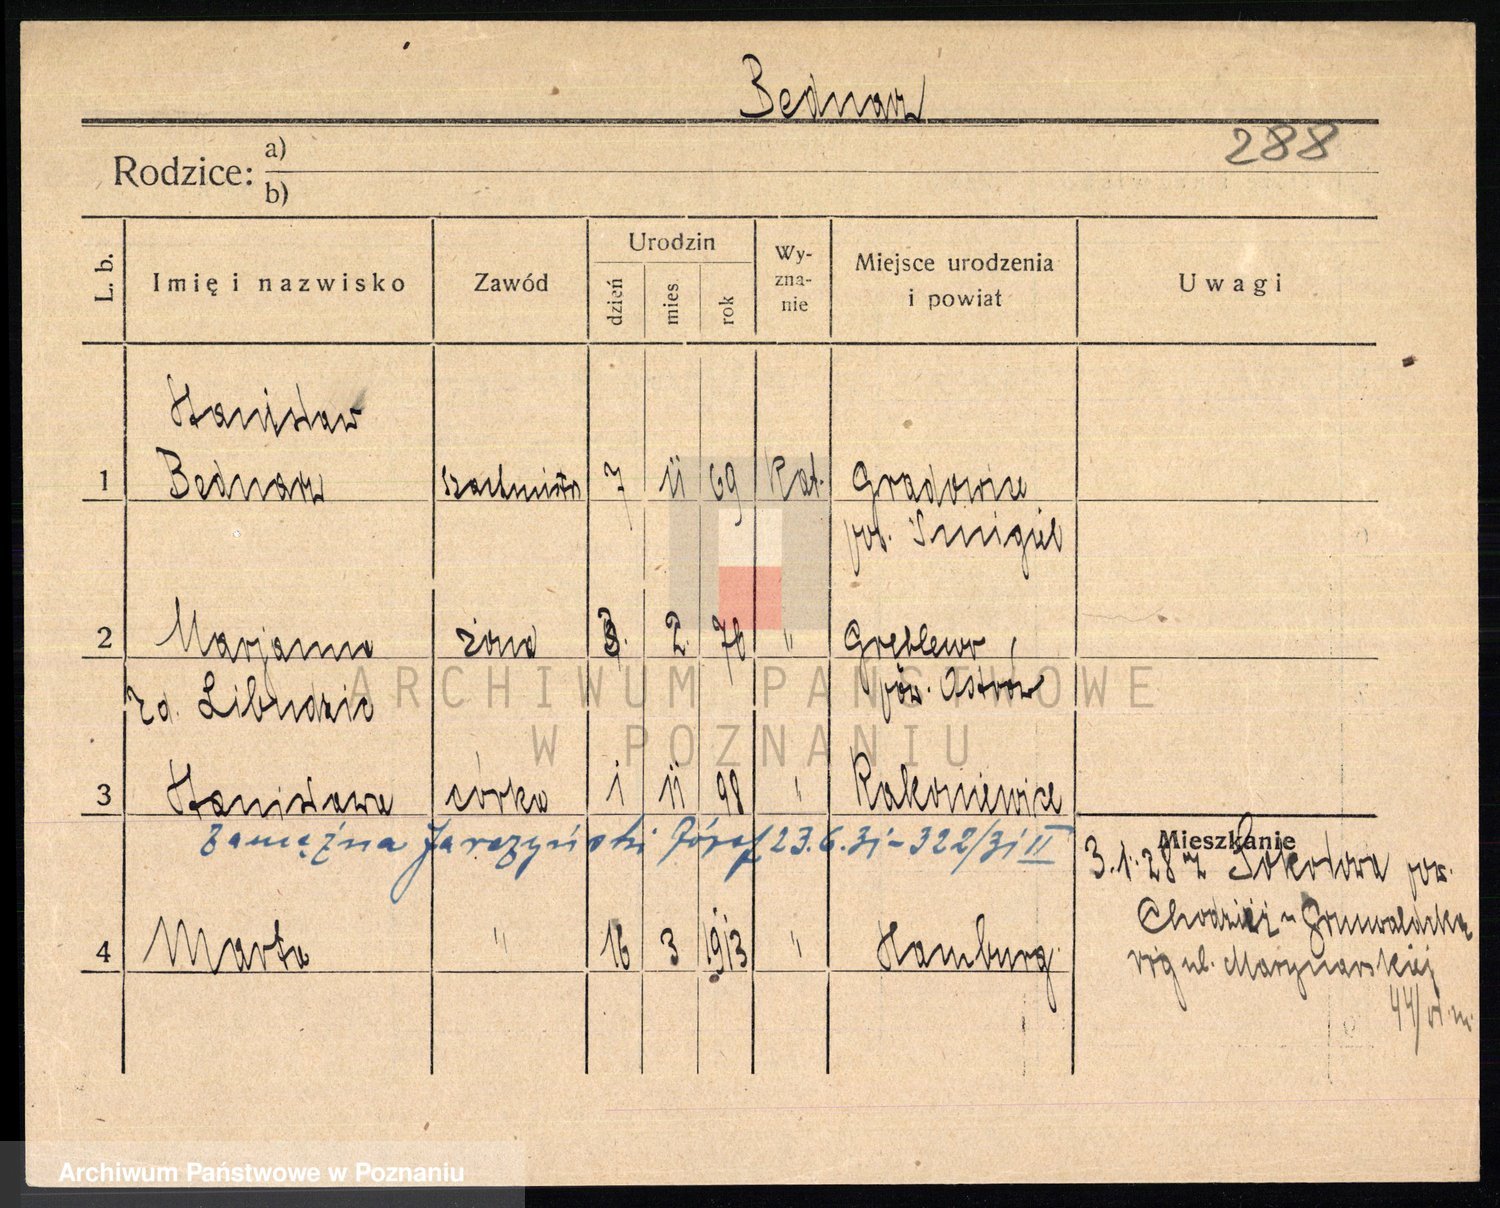 Bednarz
288
Rodzice: a)
b)
L. b. Imię i nazwisko Zawód Urodzin dzień mies. rok Wy-zna-nie Miejsce urodzenia i powiat Uwagi
Stanisław
1 Bednarz szachmistrz 7 11 69 Kat. Gradowice
pow. Śmigiel
2 Marjanna żona 3. 2. 76 " Gręblewo,
zd. Libudzic pow. Ostrów
3 Stanisława córka 1 11 98 " Rakoniewice
zamężna Jarczyński Józef 23.6.31-322/31 II
Mieszkanie
3.1.28 z Sokołowa pow.
Chodzież Grunwaldzka
4 Marta " 16 3 1913 " Hamburg
róg ul. Marynarskiej
44/
ARCHIWUM PAŃSTWOWE
W POZNANIU
Archiwum Państwowe w Poznaniu